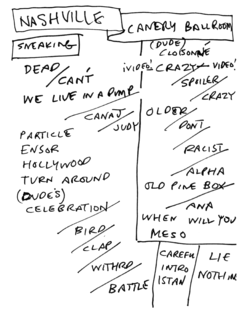 NASHVILLE
CANERY BALLROOM
SNEAKING
DEAD/CAN'T
WE LIVE IN A DUMP
CANAJ/JUDY
PARTICLE
ENSOR
HOLLYWOOD
TURN AROUND
(DUDE'S)
CELEBRATION
BIRD
CLAP
WITHRD
BATTLE
(DUDE)
CLOISONNE
¡VIDEO! CRAZY VIDEO!
SPOILER
CRAZY
OLDER
DON'T
RACIST
ALPHA
OLD PINE BOX
ANA
WHEN WILL YOU
MESO
CAREFUL
INTRO
ISTAN
LIE
NOTHIN